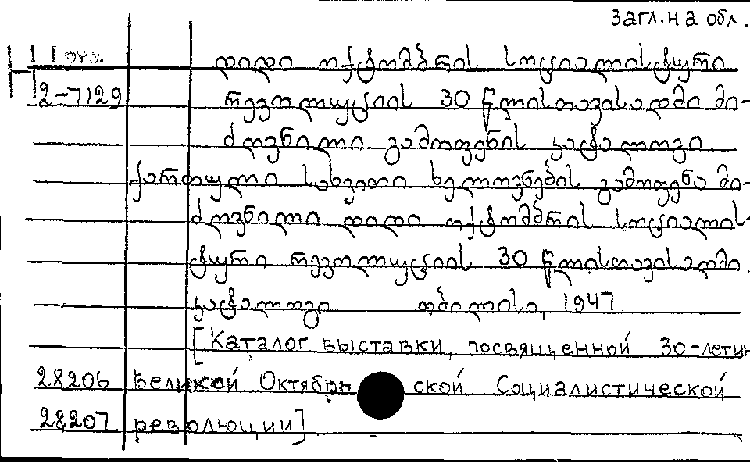 Загл. на обл.
11 груз. დიდი ოქტომბრის სოციალისტური
2-7129 რევოლუციის 30 წლისთავისადმი მი-
ძღვნილი გამოფენის კატალოგი
ქართული სახვითი ხელოვნების გამოფენა მი-
ძღვნილი დიდი ოქტომბრის სოციალის-
ტური რევოლუციის 30 წლისთავისადმი.
კატალოგი თბილისი, 1947
[Каталог выставки, посвященной 30-летию
28206 Великой Октябрьской Социалистической
28207 революции]